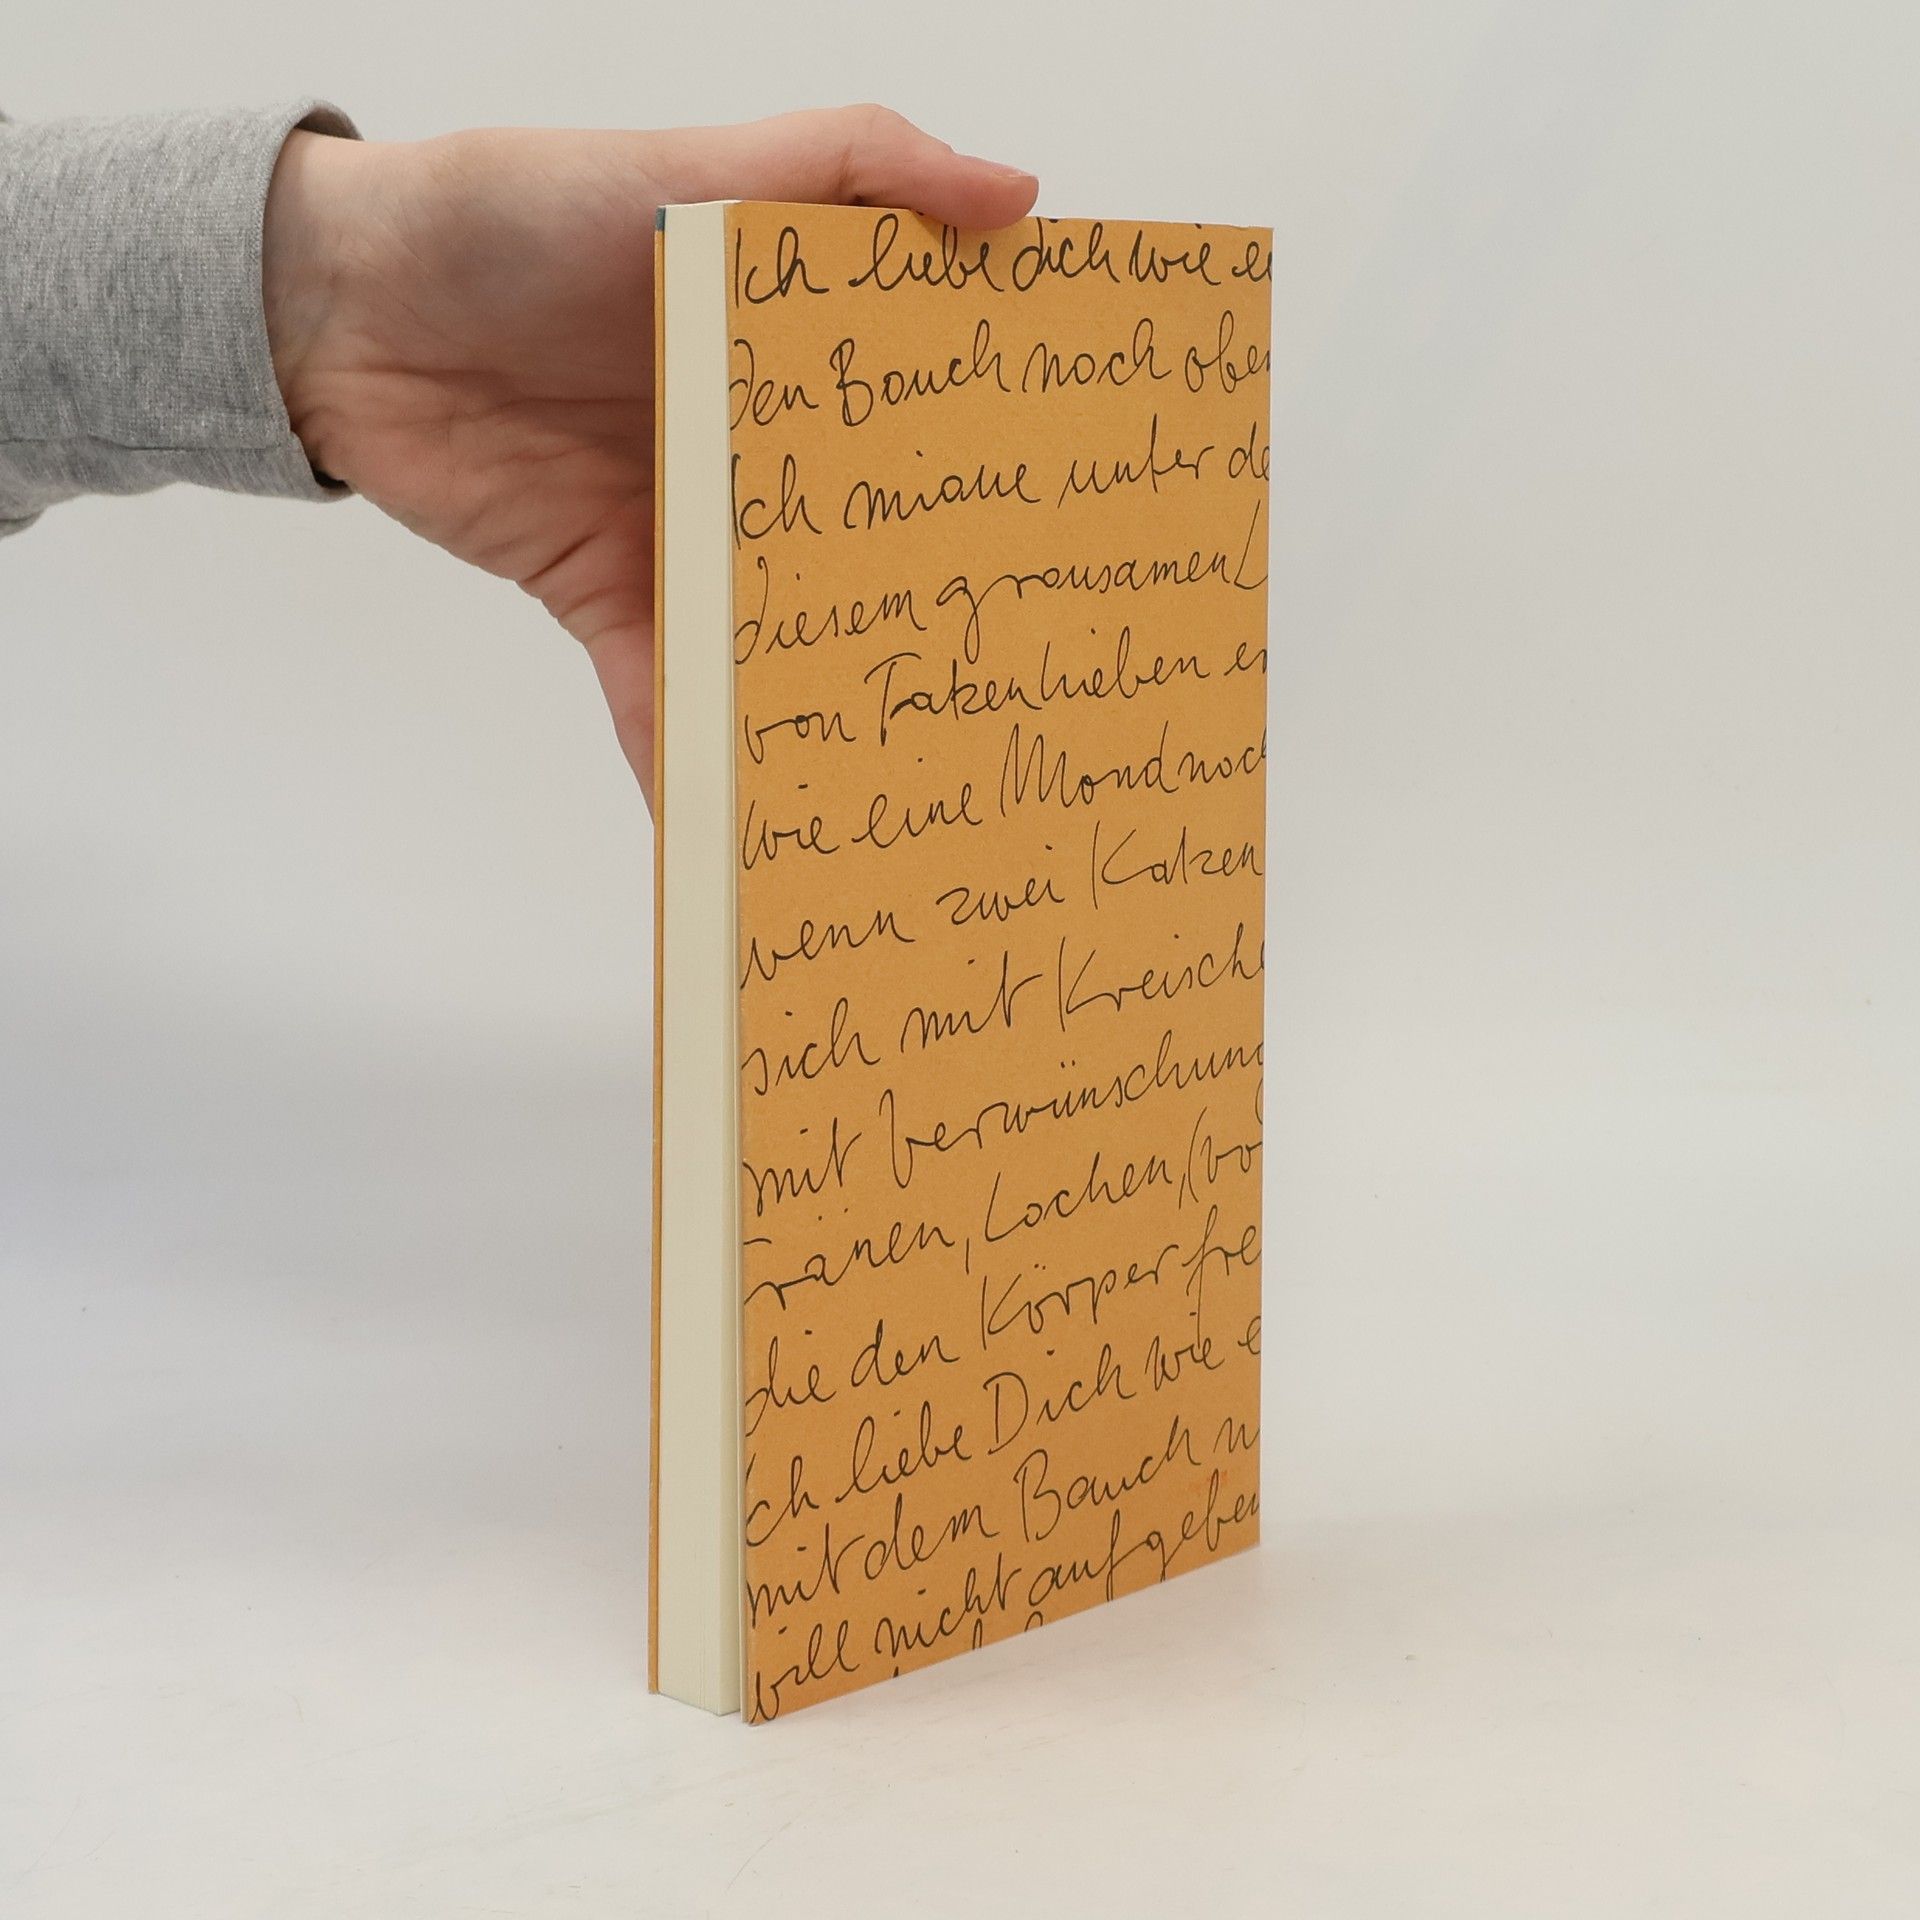 Ich liebe dich wie ei
den Bauch nach oben
Ich miaue unter de
diesem grausamen L
von Tatzenhieben er
wie eine Mondnach
wenn zwei Katzen
sich mit Kreische
mit verwünschung
Tränen, Lachen, (vo
die den Körper fre
Ich liebe Dich wie e
mit dem Bauch n
will nicht aufgeben